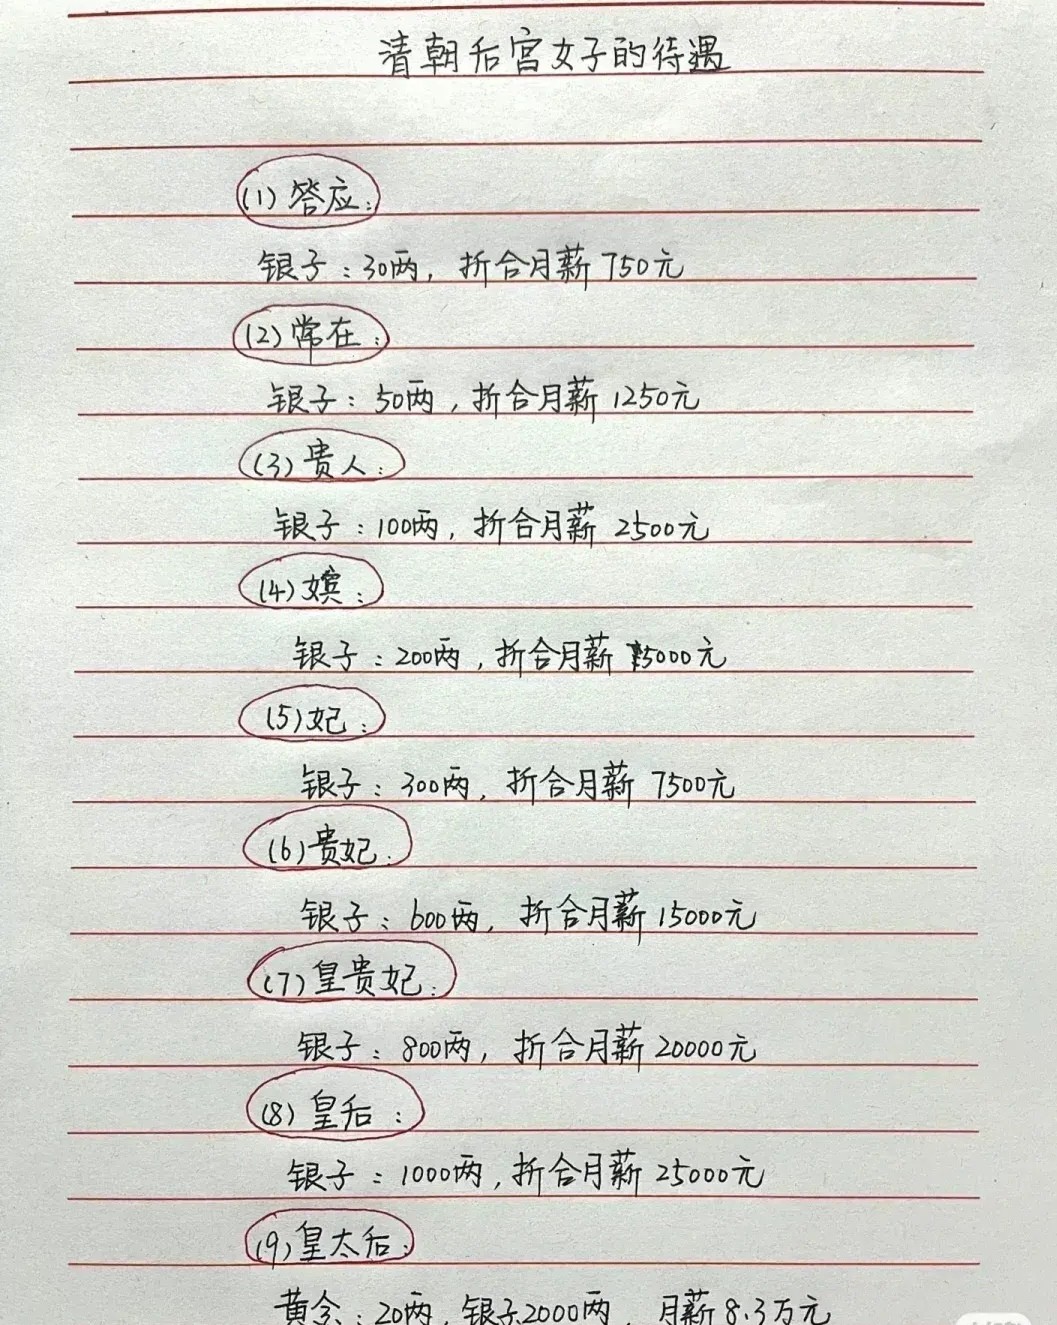 清朝后宫女子的待遇
(1)答应:
银子:30两,折合月薪750元
(2)常在:
银子:50两,折合月薪1250元
(3)贵人:
银子:100两,折合月薪2500元
(4)嫔:
银子:200两,折合月薪5000元
(5)妃:
银子:300两,折合月薪7500元
(6)贵妃:
银子:600两,折合月薪15000元
(7)皇贵妃:
银子:800两,折合月薪20000元
(8)皇后:
银子:1000两,折合月薪25000元
(9)皇太后:
黄金:20两,银子2000两,月薪8.3万元